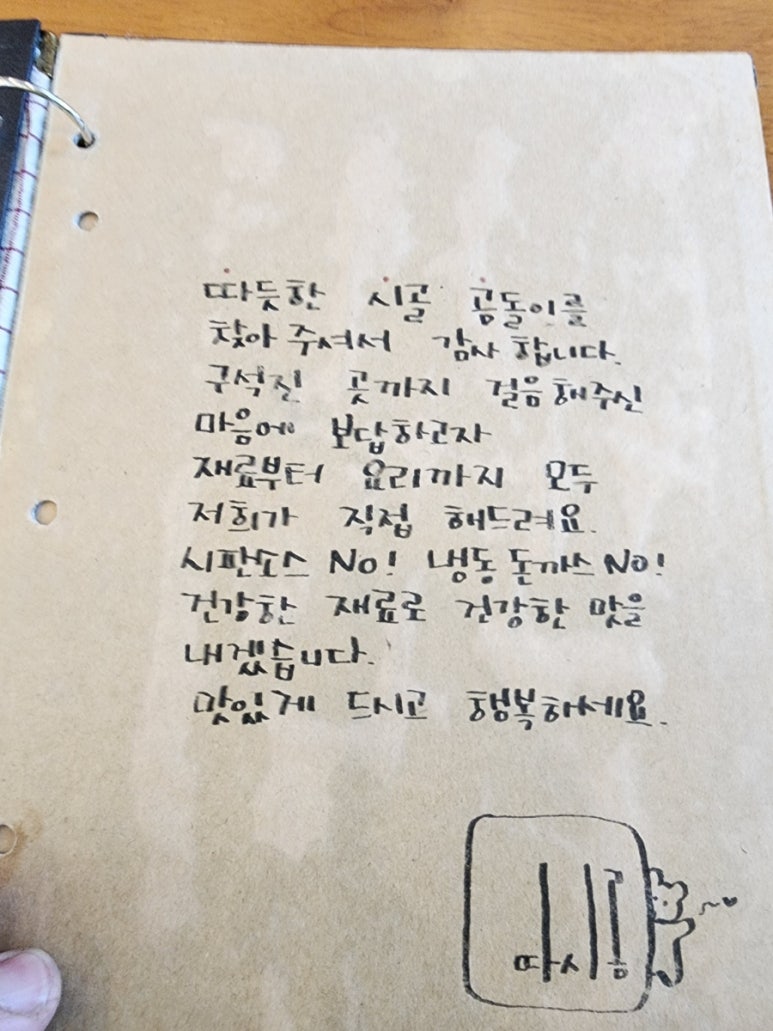 따듯한 시골 곰돌이를
찾아 주셔서 감사 합니다.
구석진 곳까지 걸음해주신
마음에 보답하고자
재료부터 요리까지 모두
저희가 직접 해드려요.
시판소스 NO! 냉동 돈까스 NO!
건강한 재료로 건강한 맛을
내겠습니다.
맛있게 드시고 행복하세요.
따시곰